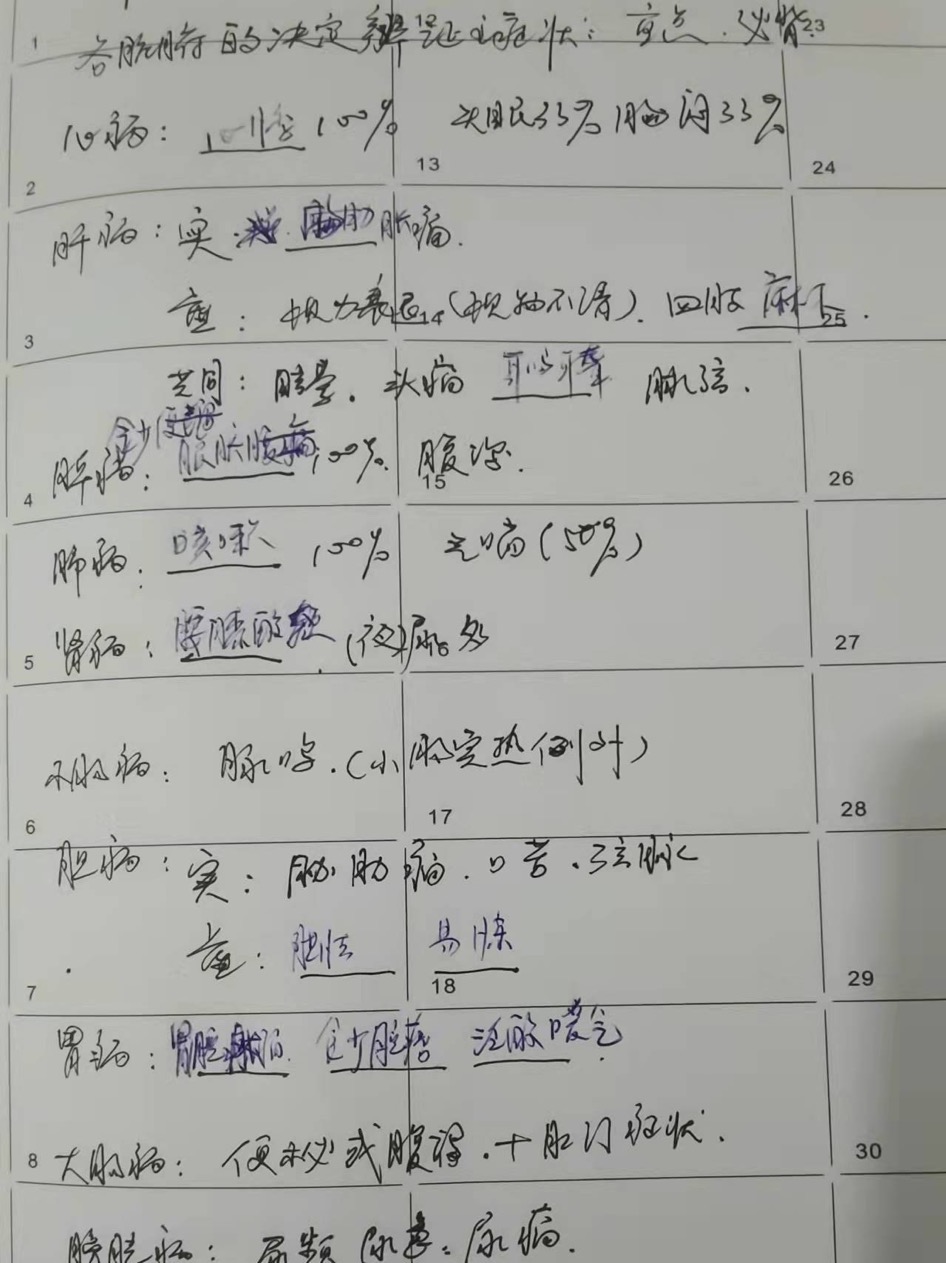 各脏腑的决定辨证主症状：重点．必背
1 12 23
心病：心悸100% 失眠33% 胸闷33%
2 13 24
肝病：实． 胸肋胀痛．
虚：视力衰退（视物不清）．四肢麻木．
3 14 25
共同：眩晕．头痛 耳鸣耳聋 脉弦．
食少
脾病： 100%． 腹泻．
4 15 26
肺病：咳喘 100% 气喘（50%）
肾病：腰膝酸软（夜）尿多
5 27
小肠病：尿 （小肠实热 ）
6 17 28
胆病：实：胁肋痛．口苦．弦脉
虚：胆怯 易惊
7 18 29
胃病：胃脘 痛 食少脘痞 泛酸嗳气
大肠病：便秘或腹泻．+肛门症状．
8 30
膀胱病：尿频 尿急．尿痛．